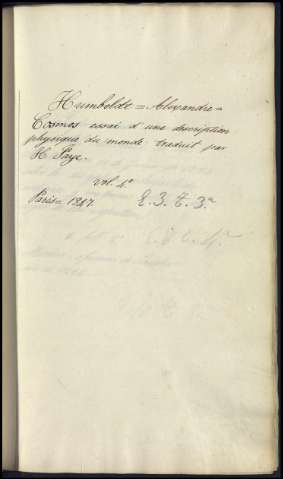 Humboldt = Alexandre =
Cosmos essai d'une description
physique du monde traduit par
H Faye.
vol. 1º
Paris = 1847. E. 3. T. 3.ª